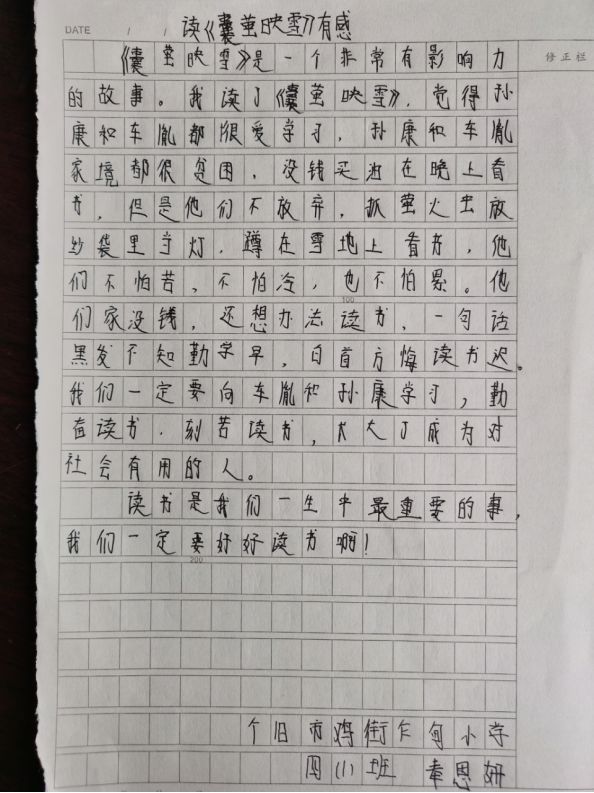 DATE / /
读《囊萤映雪》有感
修正栏
《囊萤映雪》是一个非常有影响力
的故事。我读了《囊萤映雪》，觉得孙
康和车胤都很爱学习，孙康和车胤
家境都很贫困，没钱买油在晚上看
书，但是他们不放弃，抓萤火虫放
纱袋里当灯，蹲在雪地上看书，他
们不怕苦，不怕冷，也不怕累。他
们家没钱，还想办法读书，一句话
100
黑发不知勤学早，白首方悔读书迟。
我们一定要向车胤和孙康学习，勤
奋读书，刻苦读书，长大了成为对
社会有用的人。
读书是我们一生中最重要的事，
我们一定要好好读书啊！
200
个旧市鸡街乍甸小学
四(1)班 思妍